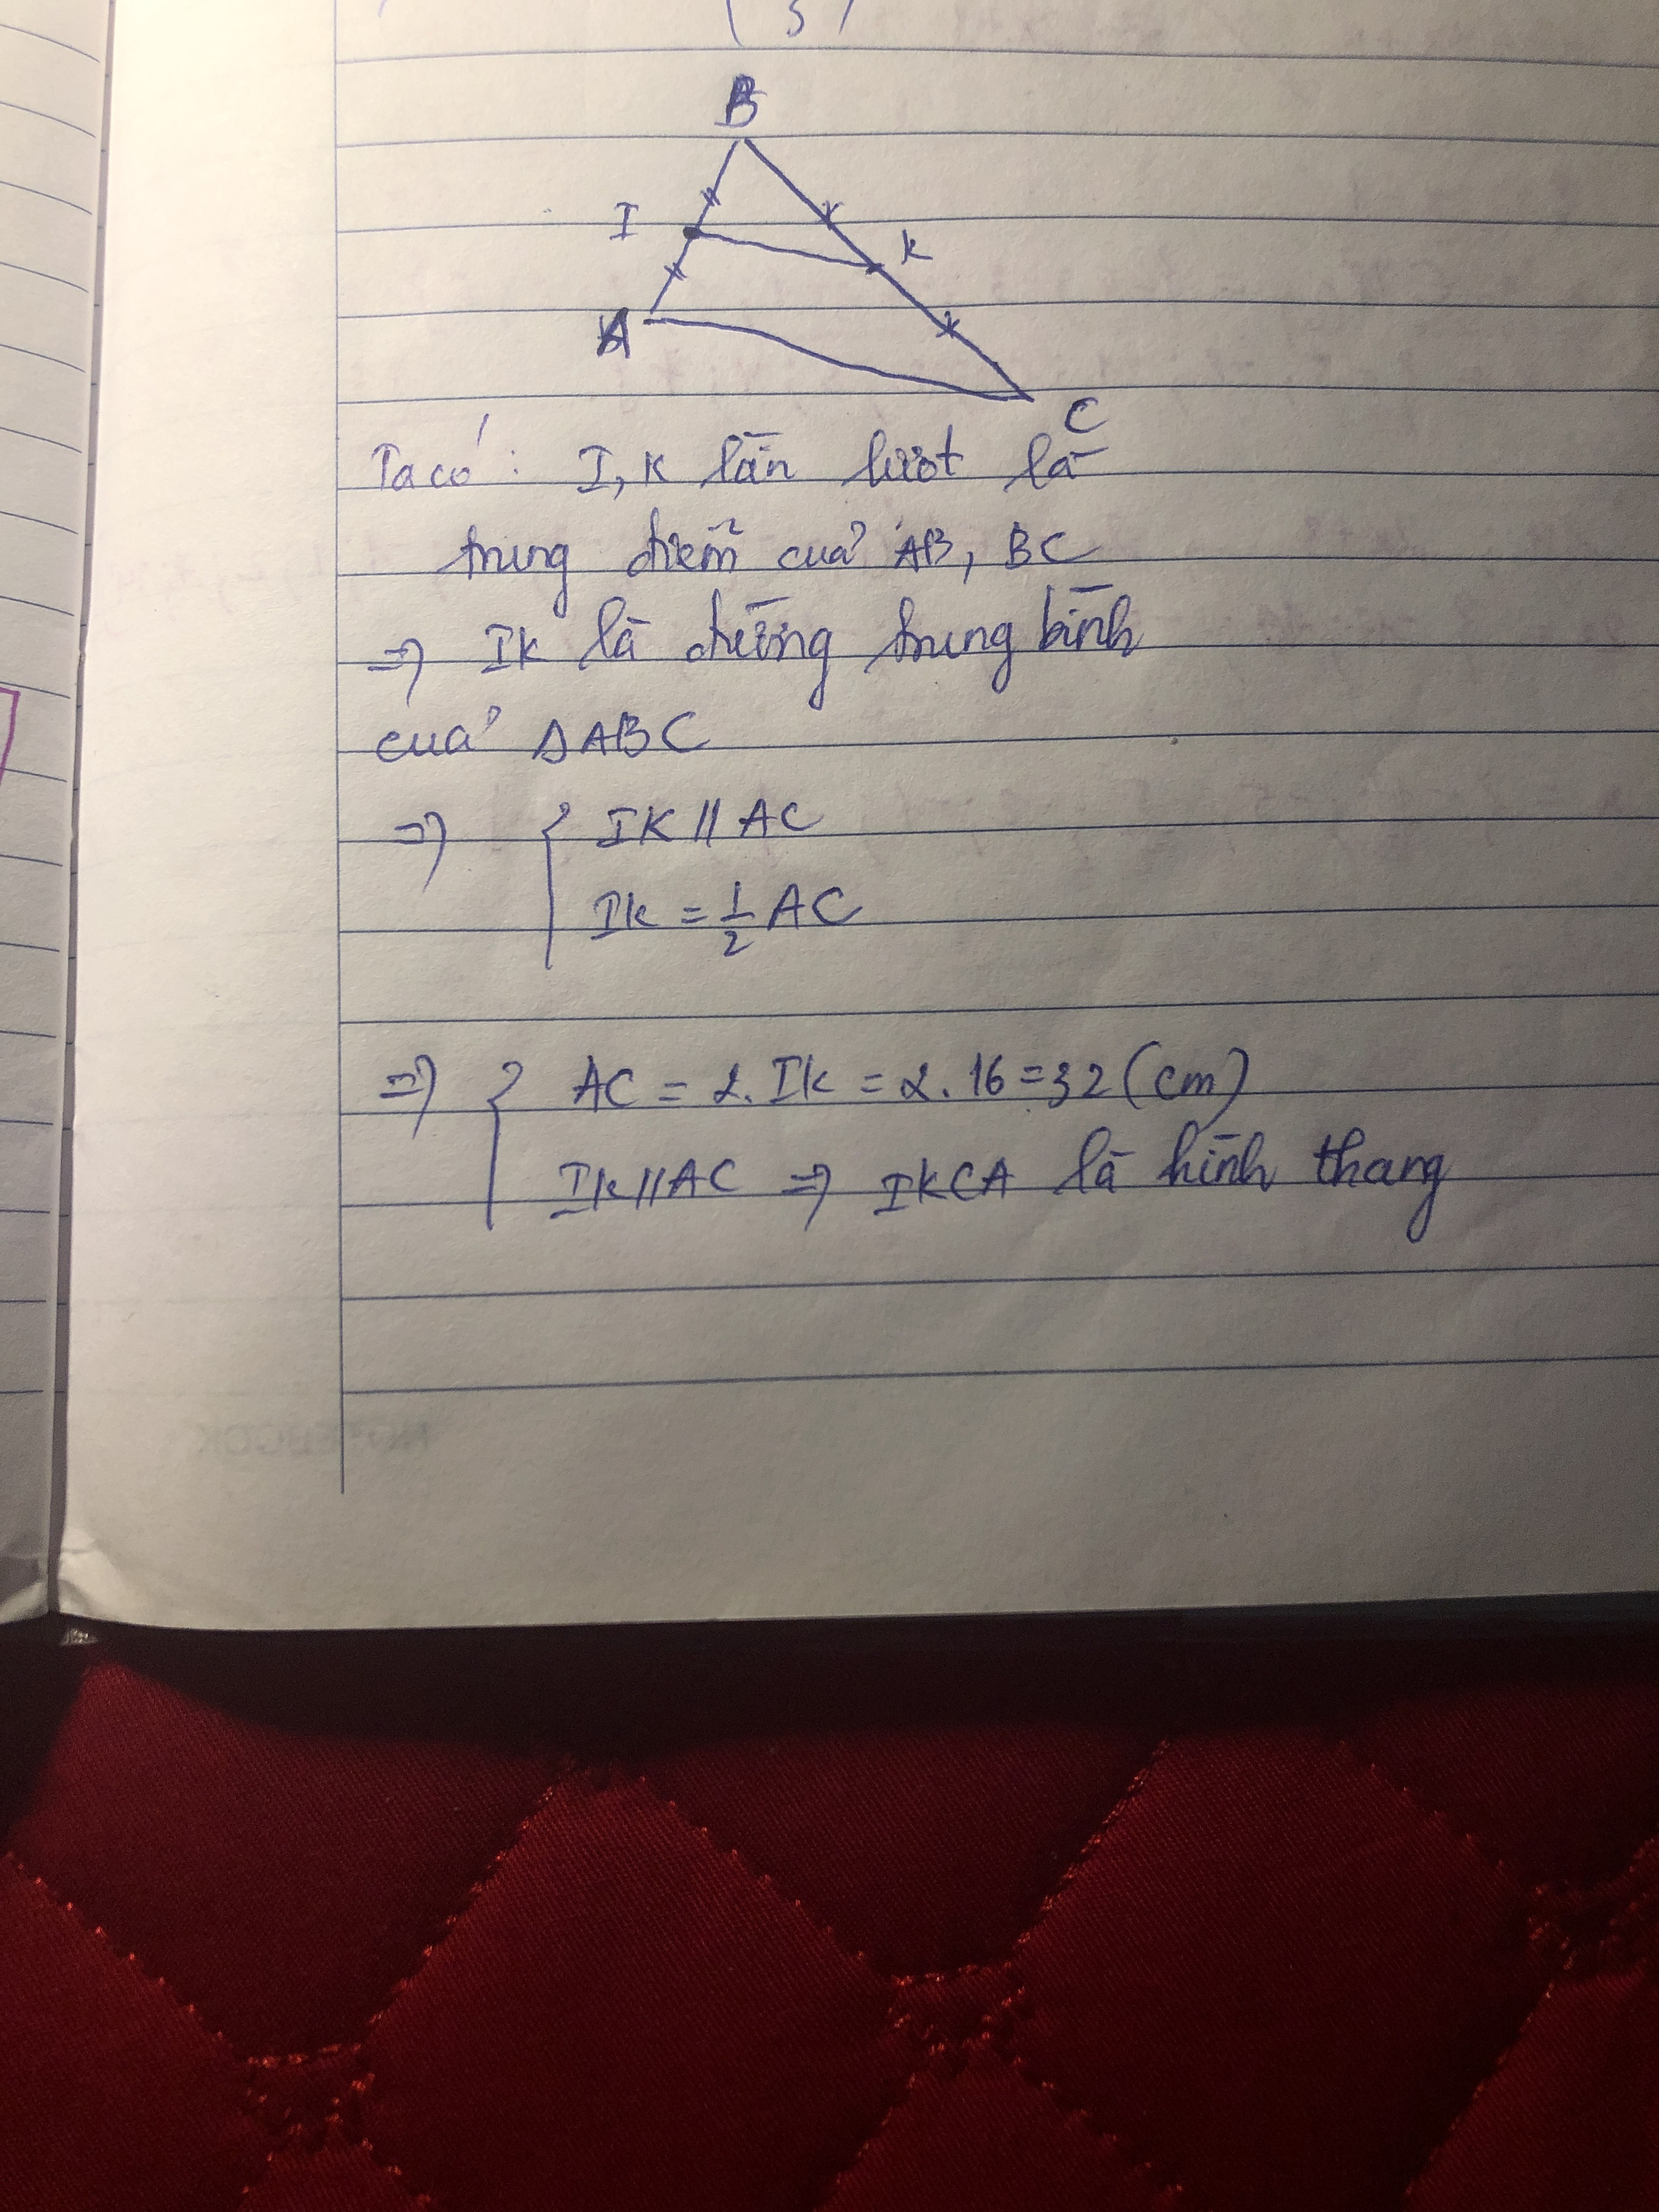 B
I
K
A
C
Ta có: I, K lần lượt là
trung điểm của AB, BC
=> IK là đường trung bình
của ΔABC
=> { IK // AC
IK = 1/2 AC
=> { AC = 2. IK = 2. 16 = 32 (cm)
IK // AC => IKCA là hình thang
NOTEBOOK